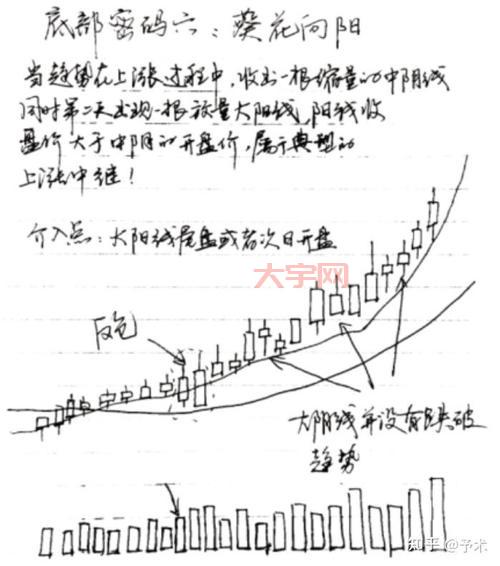 底部密码六：葵花向阳
当趋势在上涨过程中，收出一根缩量的中阴线
同时第二天出现一根放量大阳线，阳线收
盘价大于中阴的开盘价，属于典型的
上涨中继！
介入点：大阳线尾盘或者次日开盘
大宇网
反包
大阴线并没有跌破
趋势
知乎 @予术